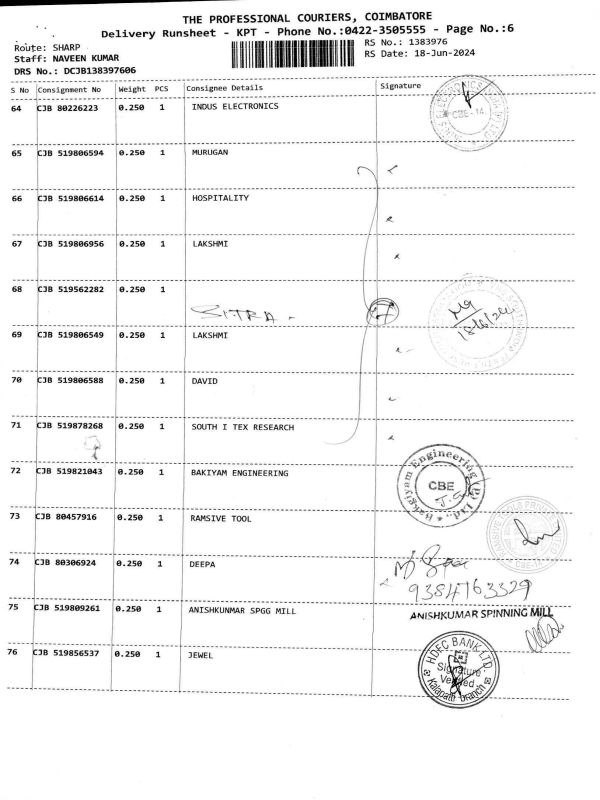 THE PROFESSIONAL COURIERS, COIMBATORE
Delivery Runsheet - KPT - Phone No.:0422-3505555 - Page No.:6
Route: SHARP
RS No.: 1383976
Staff: NAVEEN KUMAR
RS Date: 18-Jun-2024
DRS No.: DCJB138397606
S No Consignment No Weight PCS Consignee Details Signature
64 CJB 80226223 0.250 1 INDUS ELECTRONICS
CBE-14
65 CJB 519806594 0.250 1 MURUGAN
66 CJB 519806614 0.250 1 HOSPITALITY
67 CJB 519806956 0.250 1 LAKSHMI
68 CJB 519562282 0.250 1
SITRA -
18/6/24
69 CJB 519806549 0.250 1 LAKSHMI
70 CJB 519806588 0.250 1 DAVID
71 CJB 519878268 0.250 1 SOUTH I TEX RESEARCH
72 CJB 519821043 0.250 1 BAKIYAM ENGINEERING
Bakgiyam Engineering (P) Ltd.,
CBE
73 CJB 80457916 0.250 1 RAMSIVE TOOL
74 CJB 80306924 0.250 1 DEEPA
9384763329
75 CJB 519809261 0.250 1 ANISHKUNMAR SPGG MILL
ANISHKUMAR SPINNING MILL
76 CJB 519856537 0.250 1 JEWEL
HDFC BANK LTD.
Signature
Verified
Kalapatti Branch